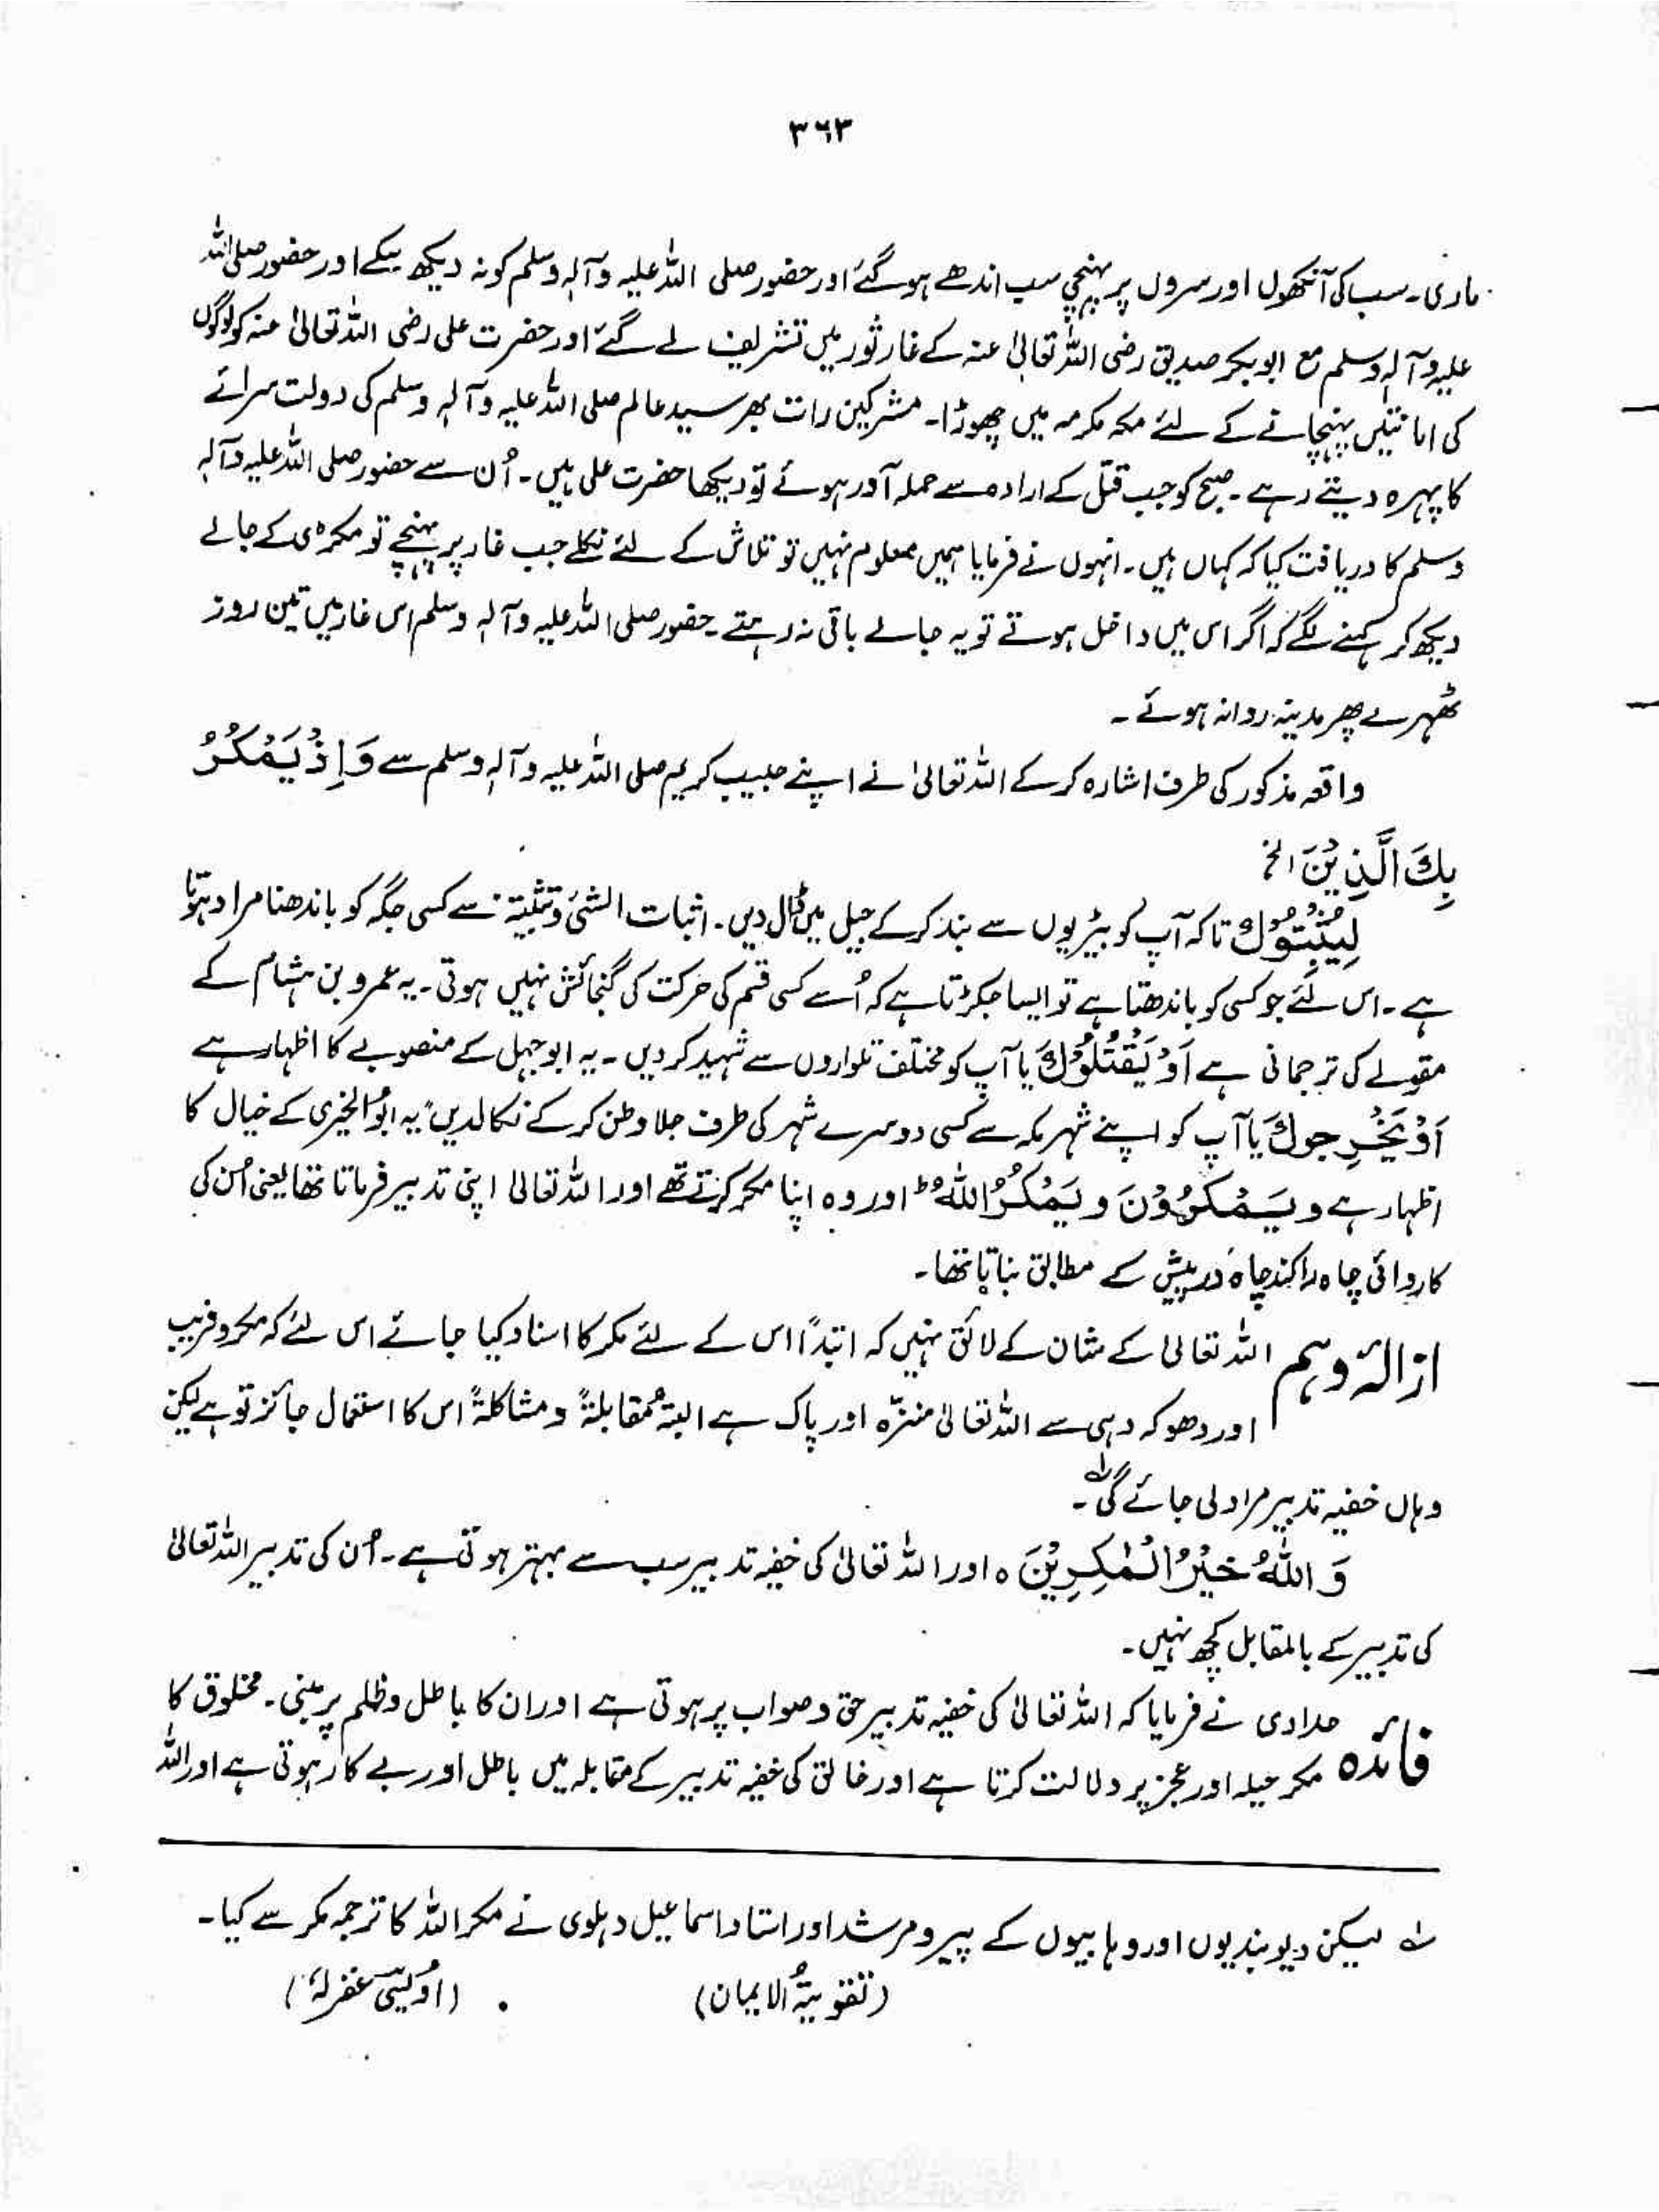 ۳۶۳
ماری۔ سب کی آنکھوں اور سروں پر پہنچی سب اندھے ہو گئے اور حضور صلی اللہ علیہ وآلہٖ وسلم کو نہ دیکھ سکے اور حضور صلی اللہ
علیہ وآلہٖ وسلم مع ابوبکر صدیق رضی اللہ تعالیٰ عنہ کے غار ثور میں تشریف لے گئے اور حضرت علی رضی اللہ تعالیٰ عنہ کو لوگوں
کی امانتیں پہنچانے کے لئے مکہ مکرمہ میں چھوڑا۔ مشرکین رات بھر سید عالم صلی اللہ علیہ وآلہٖ وسلم کی دولت سرائے
کا پہرہ دیتے رہے۔ صبح کو جب قتل کے ارادہ سے حملہ آور ہوئے تو دیکھا حضرت علی ہیں۔ اُن سے حضور صلی اللہ علیہ وآلہٖ
وسلم کا دریافت کیا کہ کہاں ہیں۔ انہوں نے فرمایا ہمیں معلوم نہیں تو تلاش کے لئے نکلے جب غار پر پہنچے تو مکڑی کے جالے
دیکھ کر کہنے لگے کہ اگر اس میں داخل ہوتے تو یہ جالے باقی نہ رہتے۔ حضور صلی اللہ علیہ وآلہٖ وسلم اس غار میں تین روز
ٹھہرے پھر مدینہ روانہ ہوئے۔
واقعہ مذکور کی طرف اشارہ کر کے اللہ تعالیٰ نے اپنے حبیب کریم صلی اللہ علیہ وآلہٖ وسلم سے وَاِذْ يَمْكُرُ
بِكَ الَّذِيْنَ الخ
لِيُثْبِتُوْكَ تاکہ آپ کو بیڑیوں سے بند کر کے جیل میں ڈال دیں۔ اثبات الشئ وتثبیتہ سے کسی جگہ کو باندھنا مراد ہوتا
ہے۔ اس لئے جو کسی کو باندھتا ہے تو ایسا جکڑتا ہے کہ اُسے کسی قسم کی حرکت کی گنجائش نہیں ہوتی۔ یہ عمرو بن ہشام کے
مقولے کی ترجمانی ہے اَوْ يَقْتُلُوْكَ یا آپ کو مختلف تلواروں سے شہید کر دیں۔ یہ ابوجہل کے منصوبے کا اظہار ہے
اَوْ يُخْرِجوكَ یا آپ کو اپنے شہر مکہ سے کسی دوسرے شہر کی طرف جلا وطن کر کے نکالدیں" یہ ابوالبخری کے خیال کا
اظہار ہے و يَمْكُرُوْنَ و يَمْكُرُ اللّٰهُ ؕ اور وہ اپنا مکر کرتے تھے اور اللہ تعالیٰ اپنی تدبیر فرماتا تھا یعنی اُن کی
کاروائی چاہ را کندہ چاہ درپیش کے مطابق بناتا تھا۔
ازالۂ وہم اللہ تعالیٰ کے شان کے لائق نہیں کہ ابتدًا اس کے لئے مکر کا اسناد کیا جائے اس لئے کہ مکر و فریب
اور دھوکہ دہی سے اللہ تعالیٰ منزّہ اور پاک ہے البتہ مُقابلۃً و مشاکلۃً اس کا استعمال جائز تو ہے لیکن
وہاں خفیہ تدبیر مراد لی جائے گی ؎۔
وَ اللّٰهُ خَيْرُ الْمٰكِرِيْنَ ہ اور اللہ تعالیٰ کی خفیہ تدبیر سب سے بہتر ہوتی ہے۔ اُن کی تدبیر اللہ تعالیٰ
کی تدبیر کے بالمقابل کچھ نہیں۔
فائدہ حدادی نے فرمایا کہ اللہ تعالیٰ کی خفیہ تدبیر حق و صواب پر ہوتی ہے اور ان کا باطل و ظلم پر مبنی۔ مخلوق کا
مکر حیلہ اور عجز پر دلالت کرتا ہے اور خالق کی خفیہ تدبیر کے مقابلہ میں باطل اور بے کار ہوتی ہے اور اللہ
؎ لیکن دیوبندیوں اور وہابیوں کے پیر و مرشد اور استاد اسماعیل دہلوی نے مکر اللہ کا ترجمہ مکر سے کیا۔
(تقویۃُ الایمان) (اُویسی غفرلہٗ)